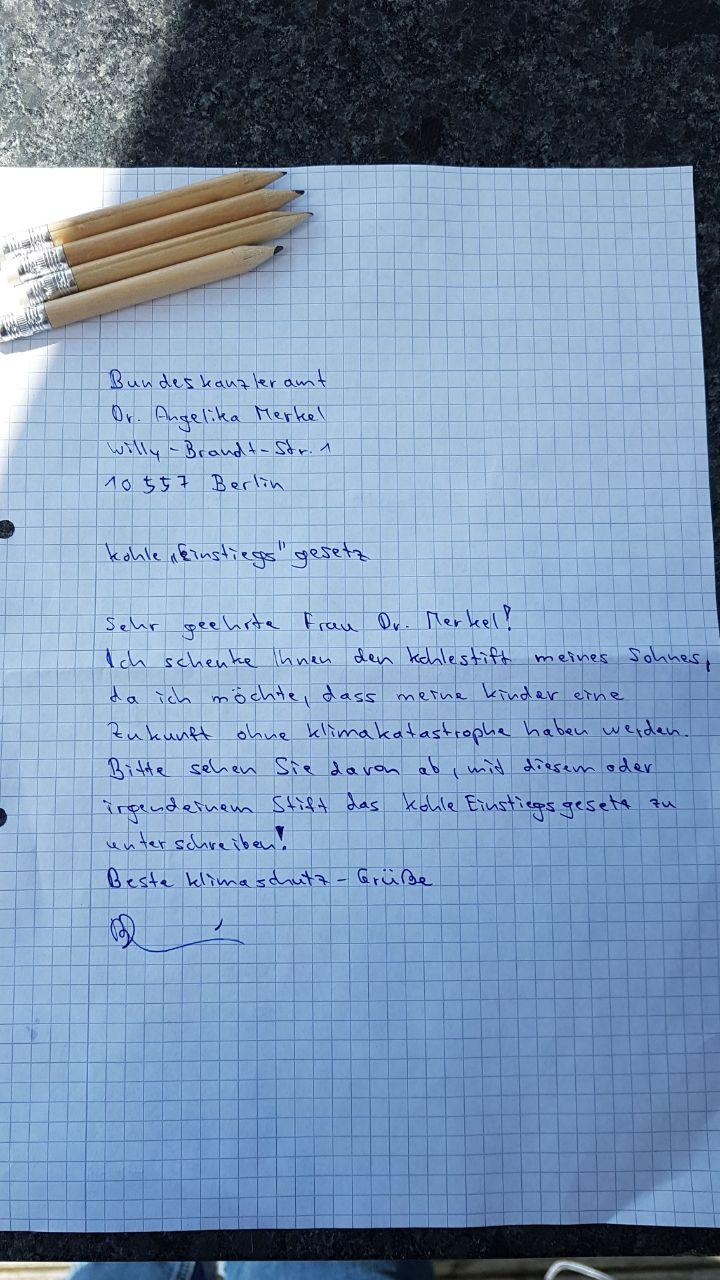 Bundeskanzleramt
Dr. Angelika Merkel
Willy-Brandt-Str. 1
10557 Berlin
Kohle „Einstiegs" gesetz
Sehr geehrte Frau Dr. Merkel!
Ich schenke Ihnen den Kohlestift meines Sohnes,
da ich möchte, dass meine Kinder eine
Zukunft ohne Klimakatastrophe haben werden.
Bitte sehen Sie davon ab, mit diesem oder
irgendeinem Stift das Kohle Einstiegsgesetz zu
unterschreiben!
Beste Klimaschutz-Grüße